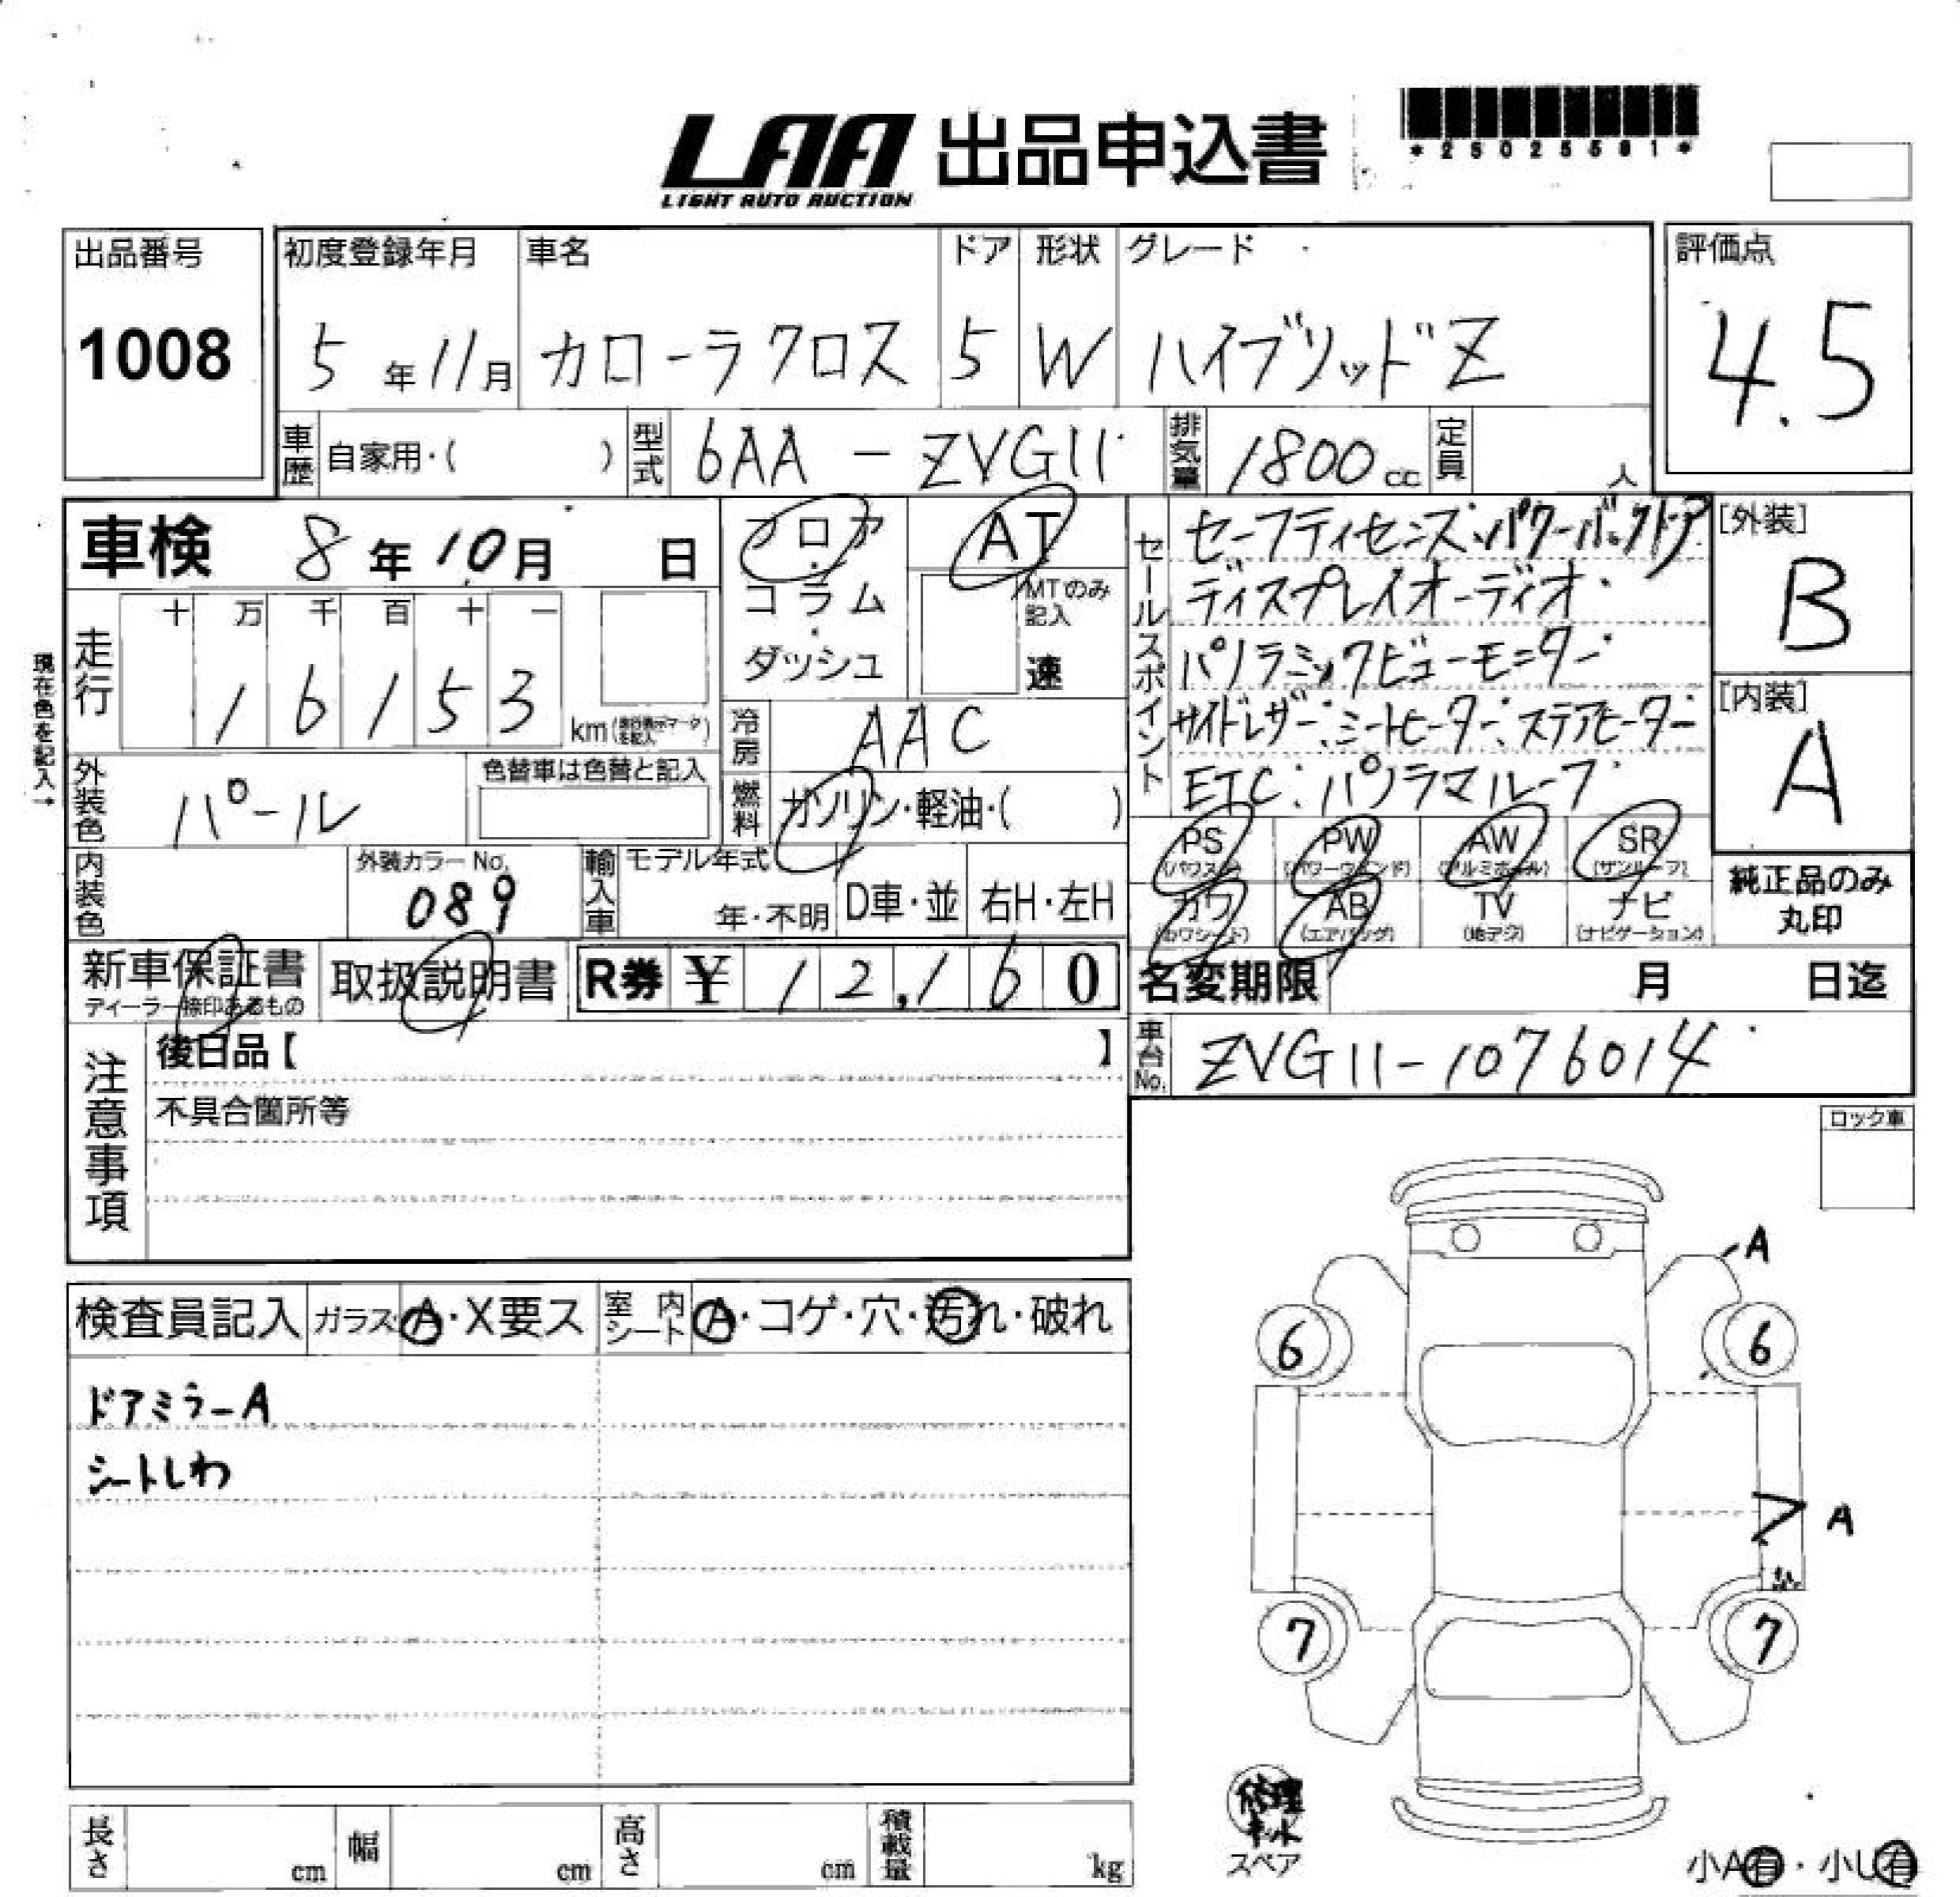 LAA 出品申込書
LIGHT AUTO AUCTION
出品番号
1008
初度登録年月 車名 ドア 形状 グレード 評価点
5年11月 カローラクロス 5 W ハイブリッドZ 4.5
車歴 自家用・( ) 型式 6AA-ZVG11 排気量 1800cc 定員 人
車検 8年10月 日
フロア
コラム
ダッシュ
AT
MTのみ記入
速
セールスポイント
セーフティセンス・パワーバックドア
ディスプレイオーディオ・
パノラミックビューモニター・
サイドレザー・シートヒーター・ステアヒーター
ETC・パノラマルーフ・
[外装]
B
[内装]
A
現在色を記入→
走行 十 万 千 百 十 一
16153 km
冷房 AAC
外装色 パール
色替車は色替と記入
燃料 ガソリン・軽油・( )
内装色
外装カラーNo. 089
輸入車 モデル年式 年・不明 D車・並 右H・左H
PS (パワステ) PW (パワーウインド) AW (アルミホイール) SR (サンルーフ)
カワ (カワシート) AB (エアバッグ) TV (地デジ) ナビ (ナビゲーション)
純正品のみ
丸印
新車保証書
ディーラー捺印あるもの
取扱説明書
R券 ¥12,160
名変期限 月 日迄
車台No. ZVG11-1076014
注意事項
後日品【 】
不具合箇所等
ロック車
検査員記入 ガラス A・X要ス 室内シート A・コゲ・穴・汚れ・破れ
ドアミラーA
シートしわ
A
6 6
A
7 7
修理キット
スペア
小A有・小U有
長さ cm 幅 cm 高さ cm 積載量 kg